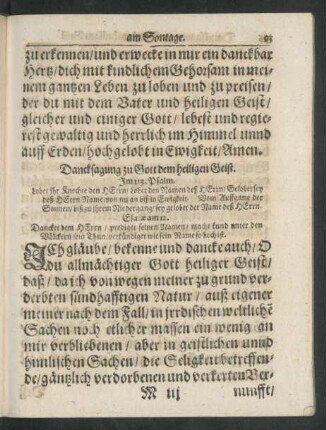 am Sontage. 93
zu erkennen/ und erwecke in mir ein danckbar
Hertz/ dich mit kindlichem Gehorsam in mei-
nem gantzen Leben zu loben und zu preisen/
der du mit dem Vater und heiligen Geist/
gleicher und einiger Gott/ lebest und regie-
rest gewaltig und herrlich im Himmel unnd
auff Erden/ hochgelobt in Ewigkeit/ Amen.
Dancksagung zu Gott dem heiligen Geist.
Im 113. Psalm.
Lobet ihr Knechte den HErrn/ lobet den Namen deß HErrn: Gelobet sey
deß HErrn Name/ von nu an biß in Ewigkeit. Vom Auffgang der
Sonnen/ biß zu ihrem Niedergang/ sey gelobet der Name deß HErrn.
Esaiæ am 12.
Dancket dem HErrn/ prediget seinen Namen/ macht kund unter den
Völckern sein Thun/ verkündiget wie sein Name so hoch ist.
ICh gläube/ bekenne und dancke auch/ O
du allmächtiger Gott heiliger Geist/
daß/ da ich von wegen meiner zu grund ver-
derbten sündhafftigen Natur/ auß eigener
meiner nach dem Fall/ in jrrdischen weltlichē
Sachen noch etlicher massen ein wenig an
mir verbliebenen/ aber in geistlichen unnd
himlischen Sachen/ die Seligkeit betreffen-
de/ gäntzlich verdorbenen und verkerten Ver-
M iij nunfft/